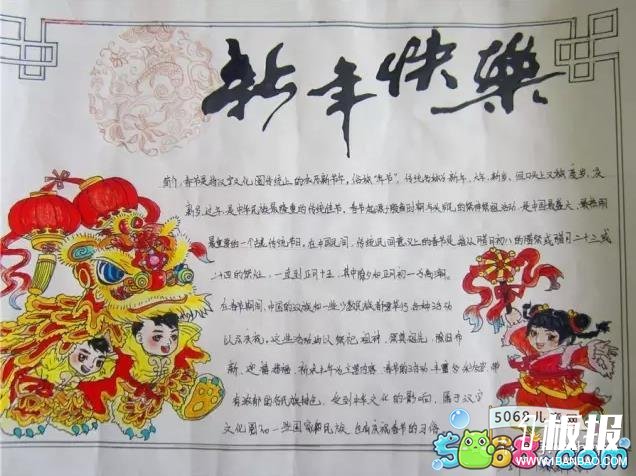 新年快樂
春节是指汉字文化圈传统上的农历新年,俗称"年节",传统名称为新年、大年、新岁,但口头上又称度岁、庆
新岁、过年,是中华民族最隆重的传统佳节。春节起源于殷商时期年头岁尾的祭神祭祖活动,是中国最盛大、最热闹
最重要的一个古老传统节日。在中国民间,传统民间意义上的春节是指从腊月初八的腊祭或腊月二十三或
二十四的祭灶,一直到正月十五,其中除夕和正月初一为高潮。
在春节期间,中国的汉族和一些少数民族都要举行各种活动
以示庆祝。这些活动均以祭祀祖神、祭奠祖先、除旧布
新、迎禧接福、祈求丰年为主要内容。春节的活动丰富多彩,带
有浓郁的各民族特色。受到中华文化的影响,属于汉字
文化圈的一些国家和民族也有庆祝春节的习俗
5068儿童网
5068.com
板报
WWW.BANBAO.COM